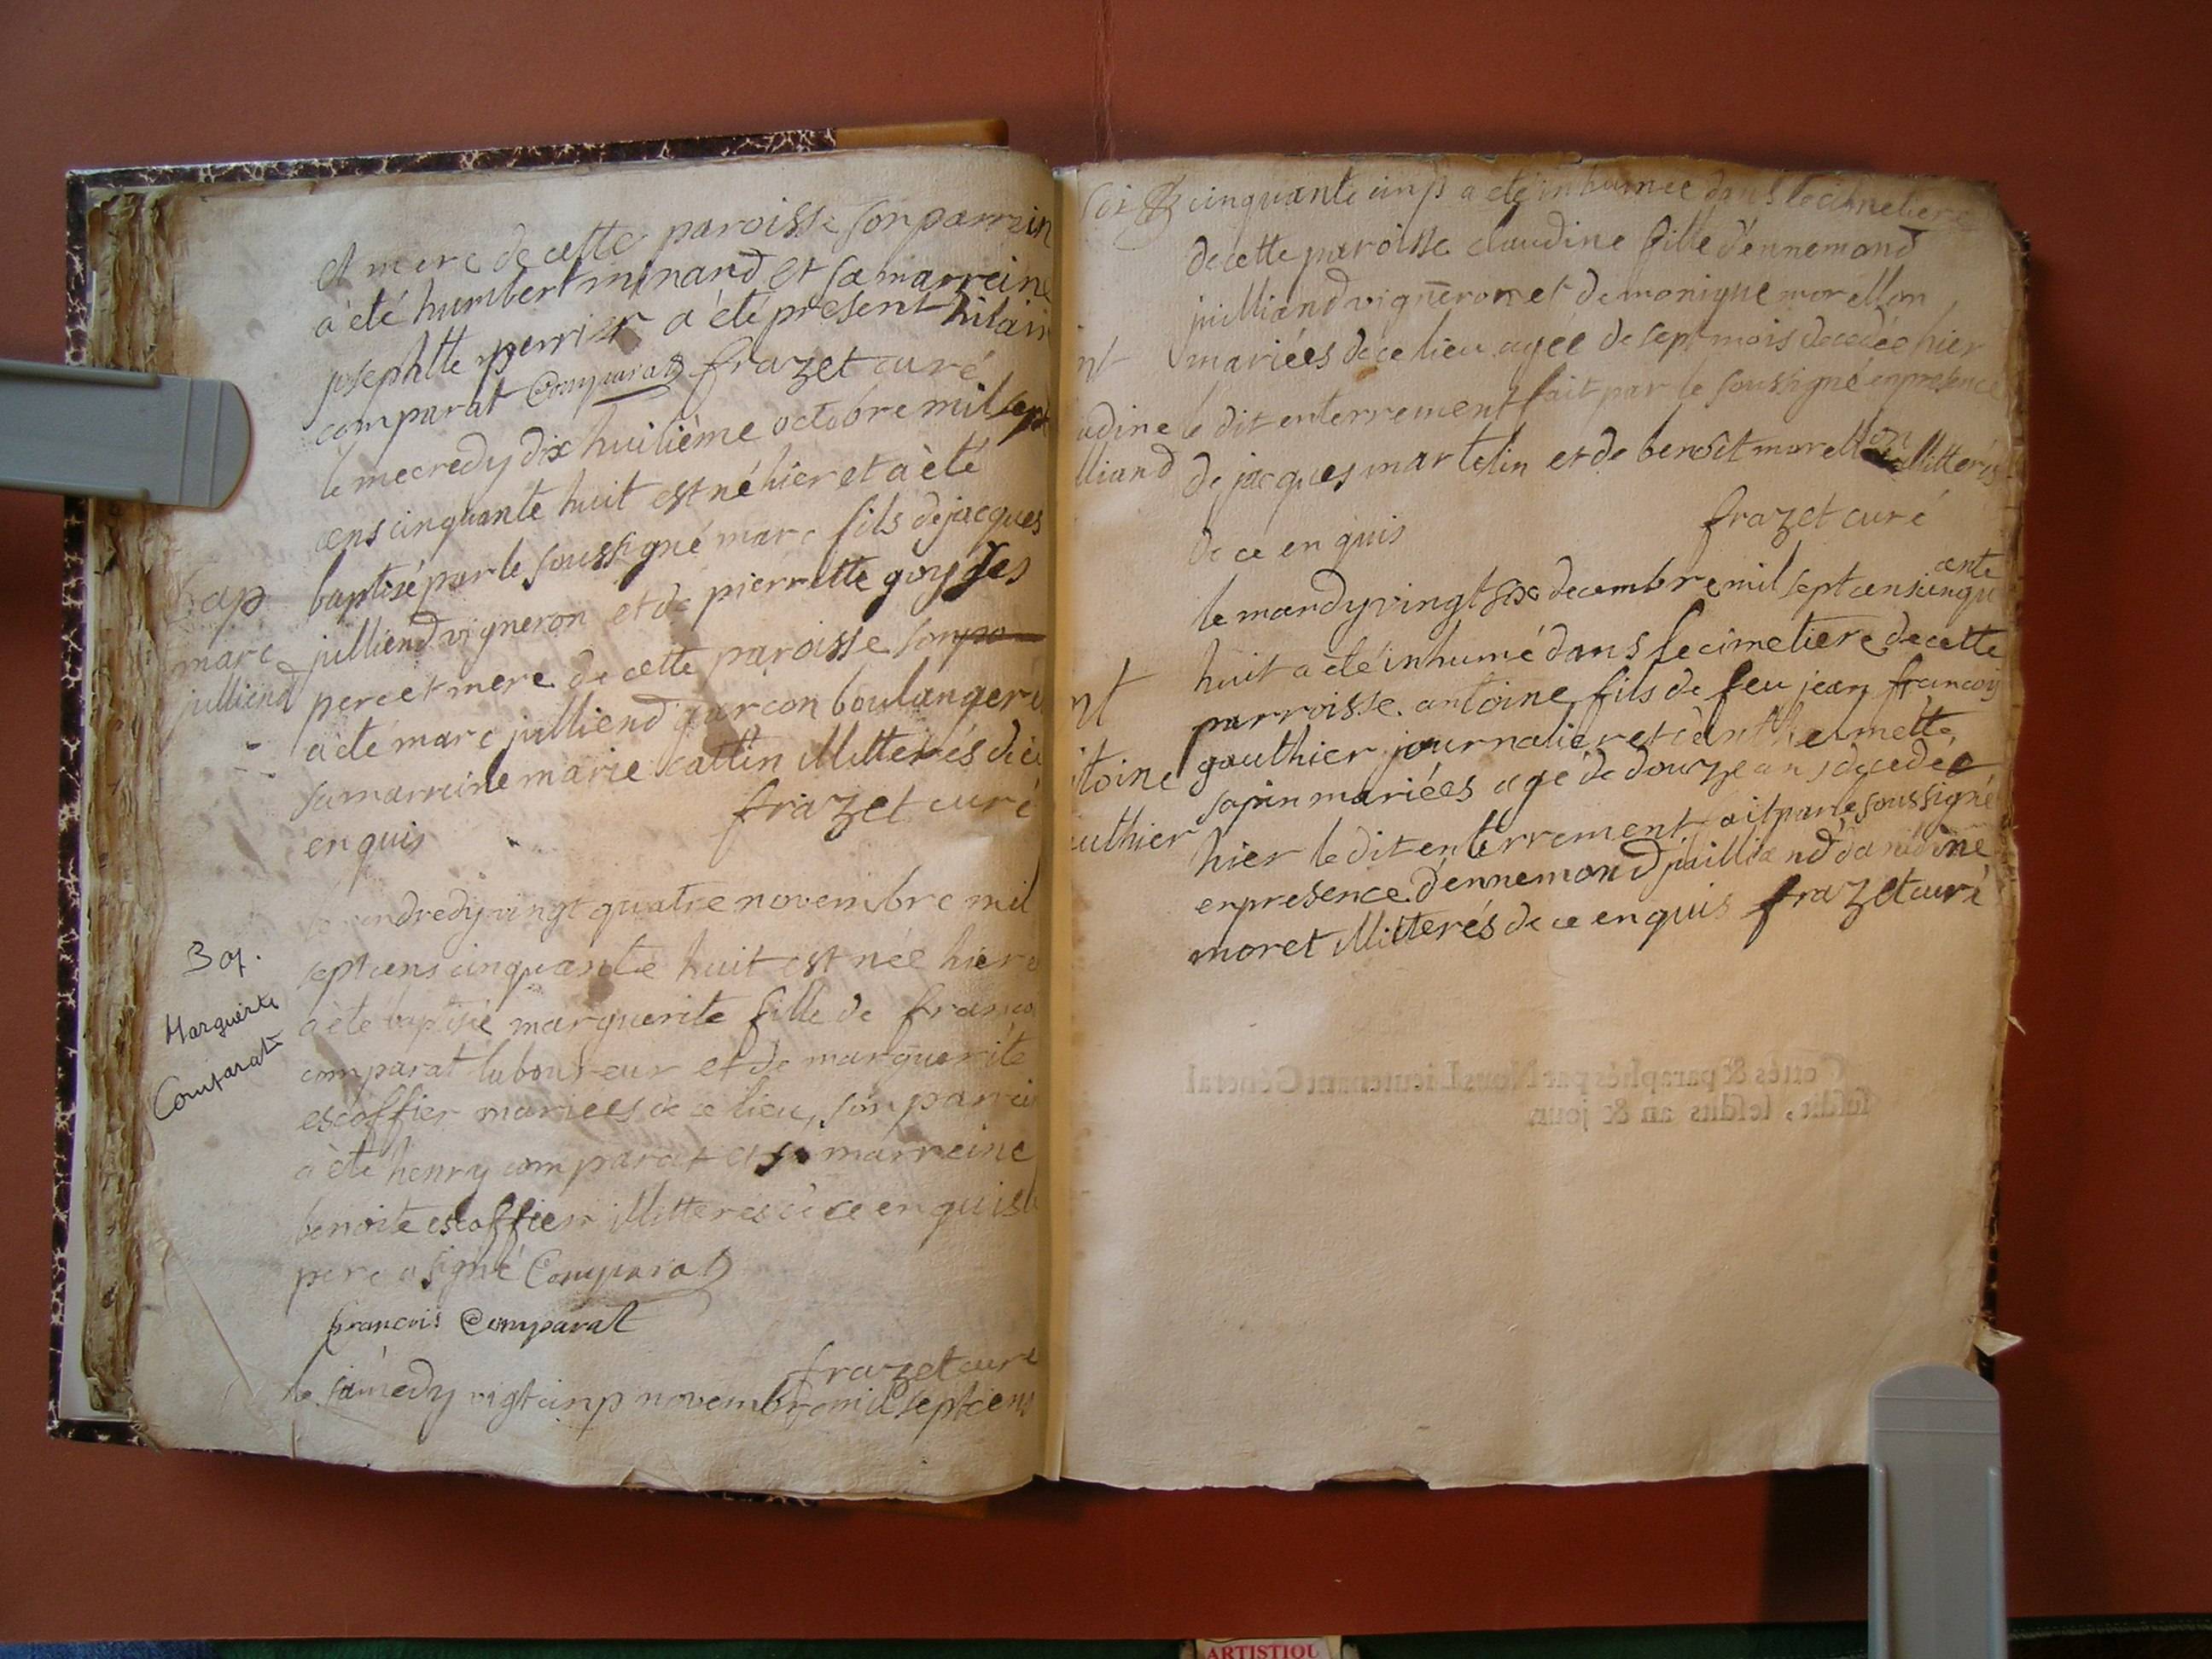 et mere de cette paroisse son parrein
a été humbert minand et sa marreine
josephtte perrier a été present hilair
comparat Comparat frazet curé
le mecredy dix huitième octobre mil sept
cens cinquante huit est né hier et a èté
Bap baptisé par le soussigné marc fils de jacques
marc jullliend vigneron et de pierrette goyges
julliend pere et mere de cette paroisse son pa
a été marc julliend garcon boulanger et
sa marreine marie cattin illitterés de ce
enquis frazet curé
le vendredy vingt quatre novembre mil
Bap. septcens cinquante huit est née hier e
Marguerite a èté baptisé marguerite fille de franco
Comparat comparat laboureur et de marguerite
escoffier mariees de ce lieu, son parrei
a èté henry comparat et sa marreine
benoite escoffier illitteres de ce enquis le
pere a signé Comparat
francois Comparat
frazet curé
le samedy vigt cinp novembre mil septcens
cinquante a été inhumée dans le cimetiere
de cette paroisse claudine fille d'ennemond
juilliand vigneron et de monique morellon
nt mariées de ce lieu agée de sept mois decedée hier
udine le dit enterrement fait par le soussigné en presence
lliand de jacques martelin et de benoît morellon illitterés
de ce en quis frazet curé
le mardy vingt six decembre mil sept cens cinquante
huit a été inhumé dans le cimetiere de cette
nt parroisse antoine fils de feu jean francoy
ntoine gauthier journalier et
sapin mariées agé de douze ans decedée
authier hier le dit enterrement fait par le soussigné
en presence d'ennemond juilliand
moret illitterés de ce en quis frazet curé
Cottés & paraphés par Nous Lieutenant Général
susdit, lesdits an & jour.
ARTISTIQU